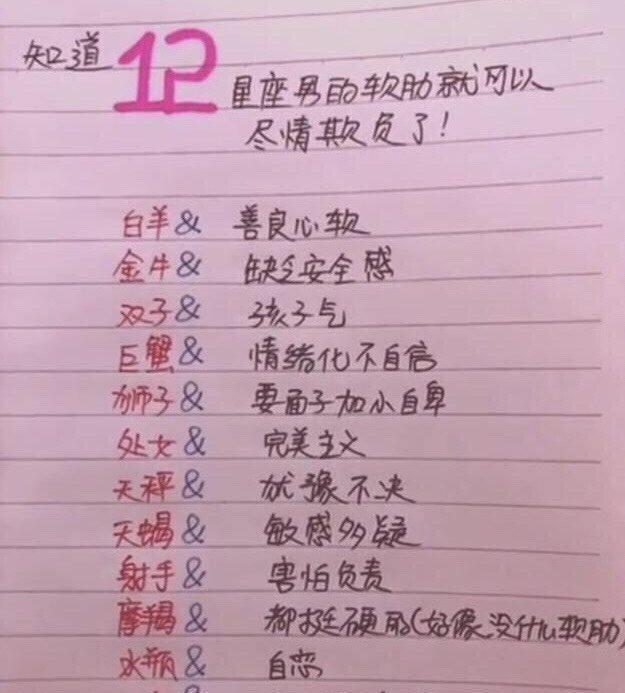 知道12星座男的软肋就可以
尽情欺负了！
白羊& 善良心软
金牛& 缺乏安全感
双子& 孩子气
巨蟹& 情绪化不自信
狮子& 要面子加小自卑
处女& 完美主义
天秤& 犹豫不决
天蝎& 敏感多疑
射手& 害怕负责
摩羯& 都挺硬的(好像没什么软肋)
水瓶& 自恋